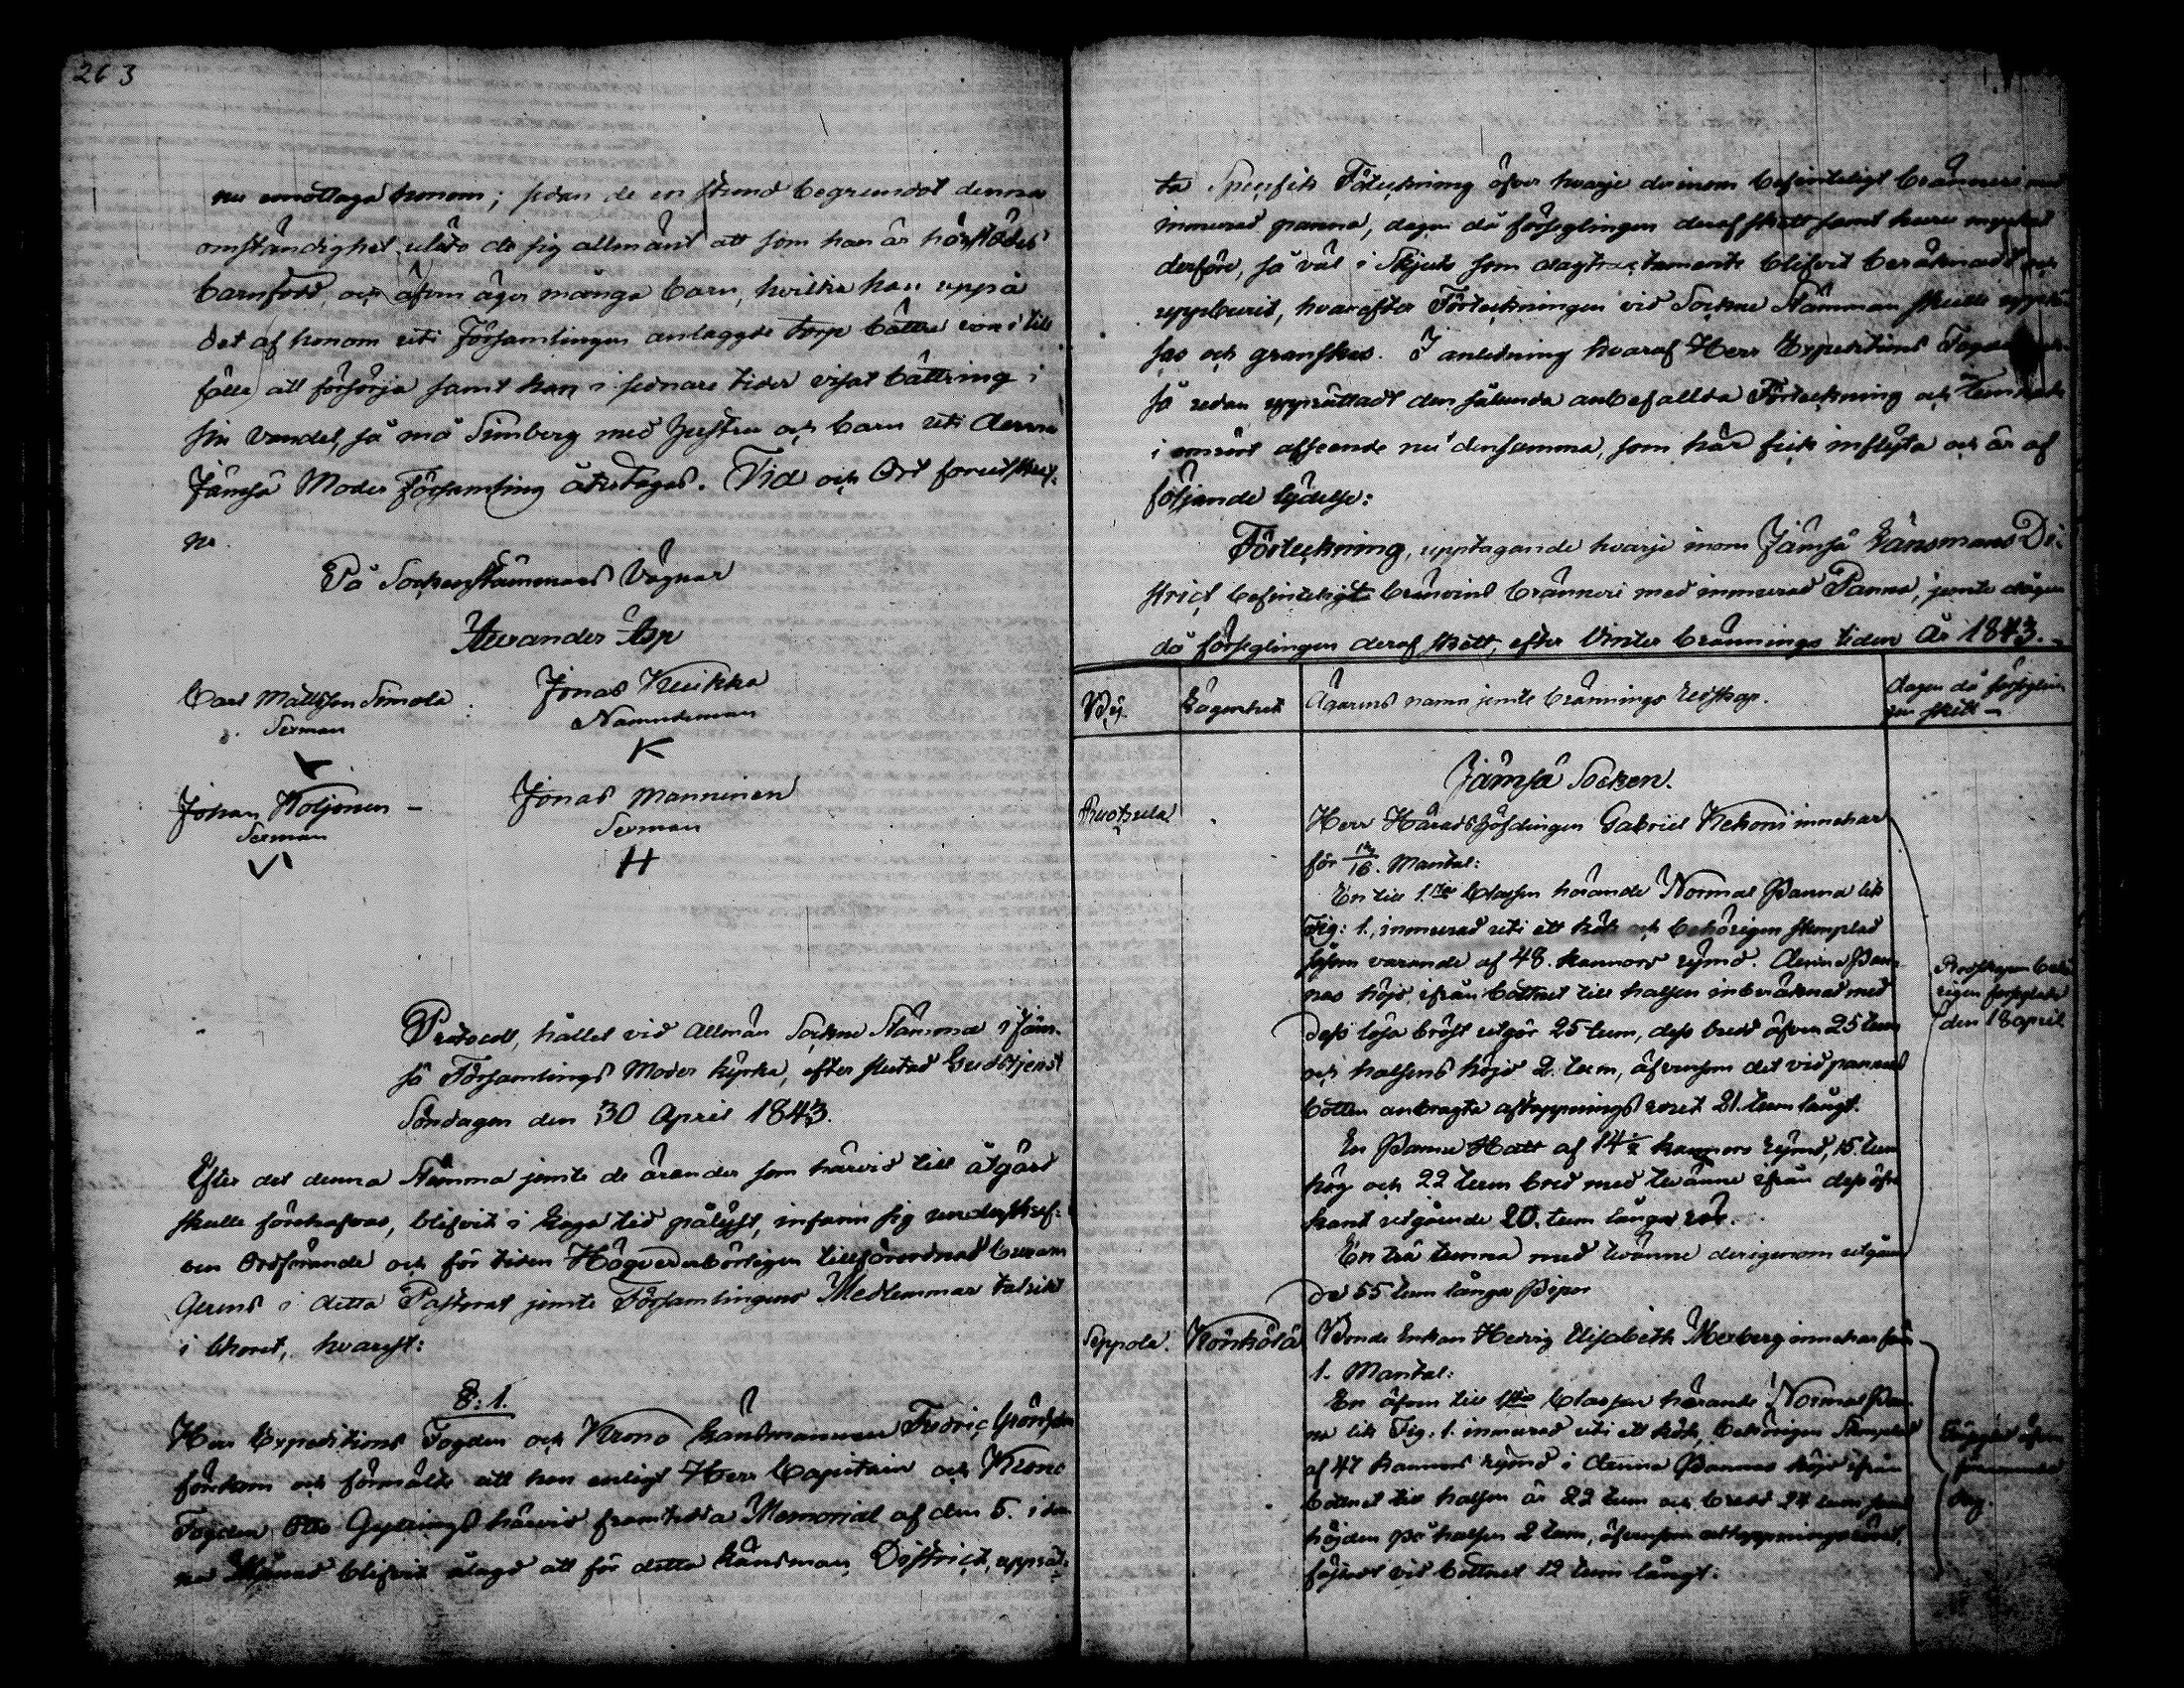 263
nu emottaga honom; sedan de en stund begrundat denna
omständighet, uläto de sig allmänt att som han är härstädes
barnfödd, och äfven äger många barn, hvilka han uppå
det af honom uti Församlingen anlaggda torp bättre vore i till
fälle att försörja samt han i sednare tider visat bättring i
sin vandel, så må Simberg med hustru och barn uti denna
Jämsä Moder Församling återtagas. Tid och Ort förutskref-
ne.
På Sockenstämmans Vägnar
Alexander Asp
Carl Mattsson Simola
Sexman
Jonas Kuikka
Nämndeman
K
Johan Koljonen –
Sexman
Jonas Manninen
Sexman
H
Protocoll, hållet vid allmän Sockne Stämma i Jäm-
sä Församlings Moder kyrka, efter slutad Gudstjenst
Söndagen den 30 April 1843.
Efter det denna Stämma jemte de ärender som härvid till åtgärd
skulle förehafvas, blifvit i laga tid pålyst, infann sig underskref-
ven Ordförande och för tiden Högvederbörligen tillförordnad Curam
Gerens i detta Pastorat jemte Församlingens Medlemmar talrikt
i Choret, hvarest:
§. 1.
Herr Expeditions Fogden och Krono Länsmannen Fredric Grönholm
förekom och förmälte att han enligt Herr Capitain och Krono
Fogden Otto Gyllings härvid framtedda Memorial af den 5. i den
na Månad blifvit ålagd att för detta Länsman District upprät-
ta Specifik Förteckning öfver hvarje derinom befinteligt bränneri med
inmurad panna, dagen då förseglingen deraf skett samt huru mycket
derföre, så väl i Skjuts som dagtractamente blifvit beräknadt och
uppburit, hvarefter Förteckningen vid Sockne Stämman skulle upplä-
sas och granskas. I anledning hvaraf Herr Expeditions Fogden
så redan upprättadt den sålunda anbefallda Förteckning och
i omrört afseende nu densamma, som här fick inflyta och är af
följande lydelse:
Förteckning, upptagande hvarje inom Jämsä Länsmans Di-
strict befinteligt bränvins bränneri med inmurad Panna, jemte dagen
då förseglingen deraf skett, efter Vinter brännings tiden År 1843. –
By
Lägenhet
Ägarens namn jemte brännings redskap.
dagen då förseglin
gen skett –
Jämsä Socken.
Ruotsula
Herr Häradshöfdingen Gabriel Kekoni innehar
för 16. Mantal:
En till 1.sta Classen hörande Normal Panna lik
Fig: 1., inmurad uti ett kök och behörigen stemplad
såsom varande af 48. kannors rymd. Denna Pan
nas höjd, ifrån bottnet till halsen inberäknad med
dess lösa bröst utgör 25 tum, dess bredd äfven 25 tum
och halsens höjd 2. tum, äfvensom det vid pannans
botten anbragta aftappnings röret 21. tum långt.
En Panne Hatt af 14½ kannors rymd, 15. tum
hög och 22 tum bred med tvänne ifrån dess öfre
kant utgående 20. tum långa rör.
En trä tunna med tvänne derigenom utgåen
de 55 tum långa Pipor
Redskapen behö
rigen förseglade
den 18 april
Seppola.
Könkölä
Bonde Enkan Hedvig Elisabeth Moxberg innehar för
1. Mantal:
En äfven till 1sta Classen hörande Normal Pan
na lik Fig. 1. inmurad uti ett kök, behörigen Stemplad
af 47 kannors rymd i denna Pannas höjd ifrån
bottnet till halsen är 22 tum och bredd 24 tum samt
höjden på halsen 2 tum, äfvensom aftappnings röret,
fästadt vid bottnet 12 tum långt.
äfven
dag.